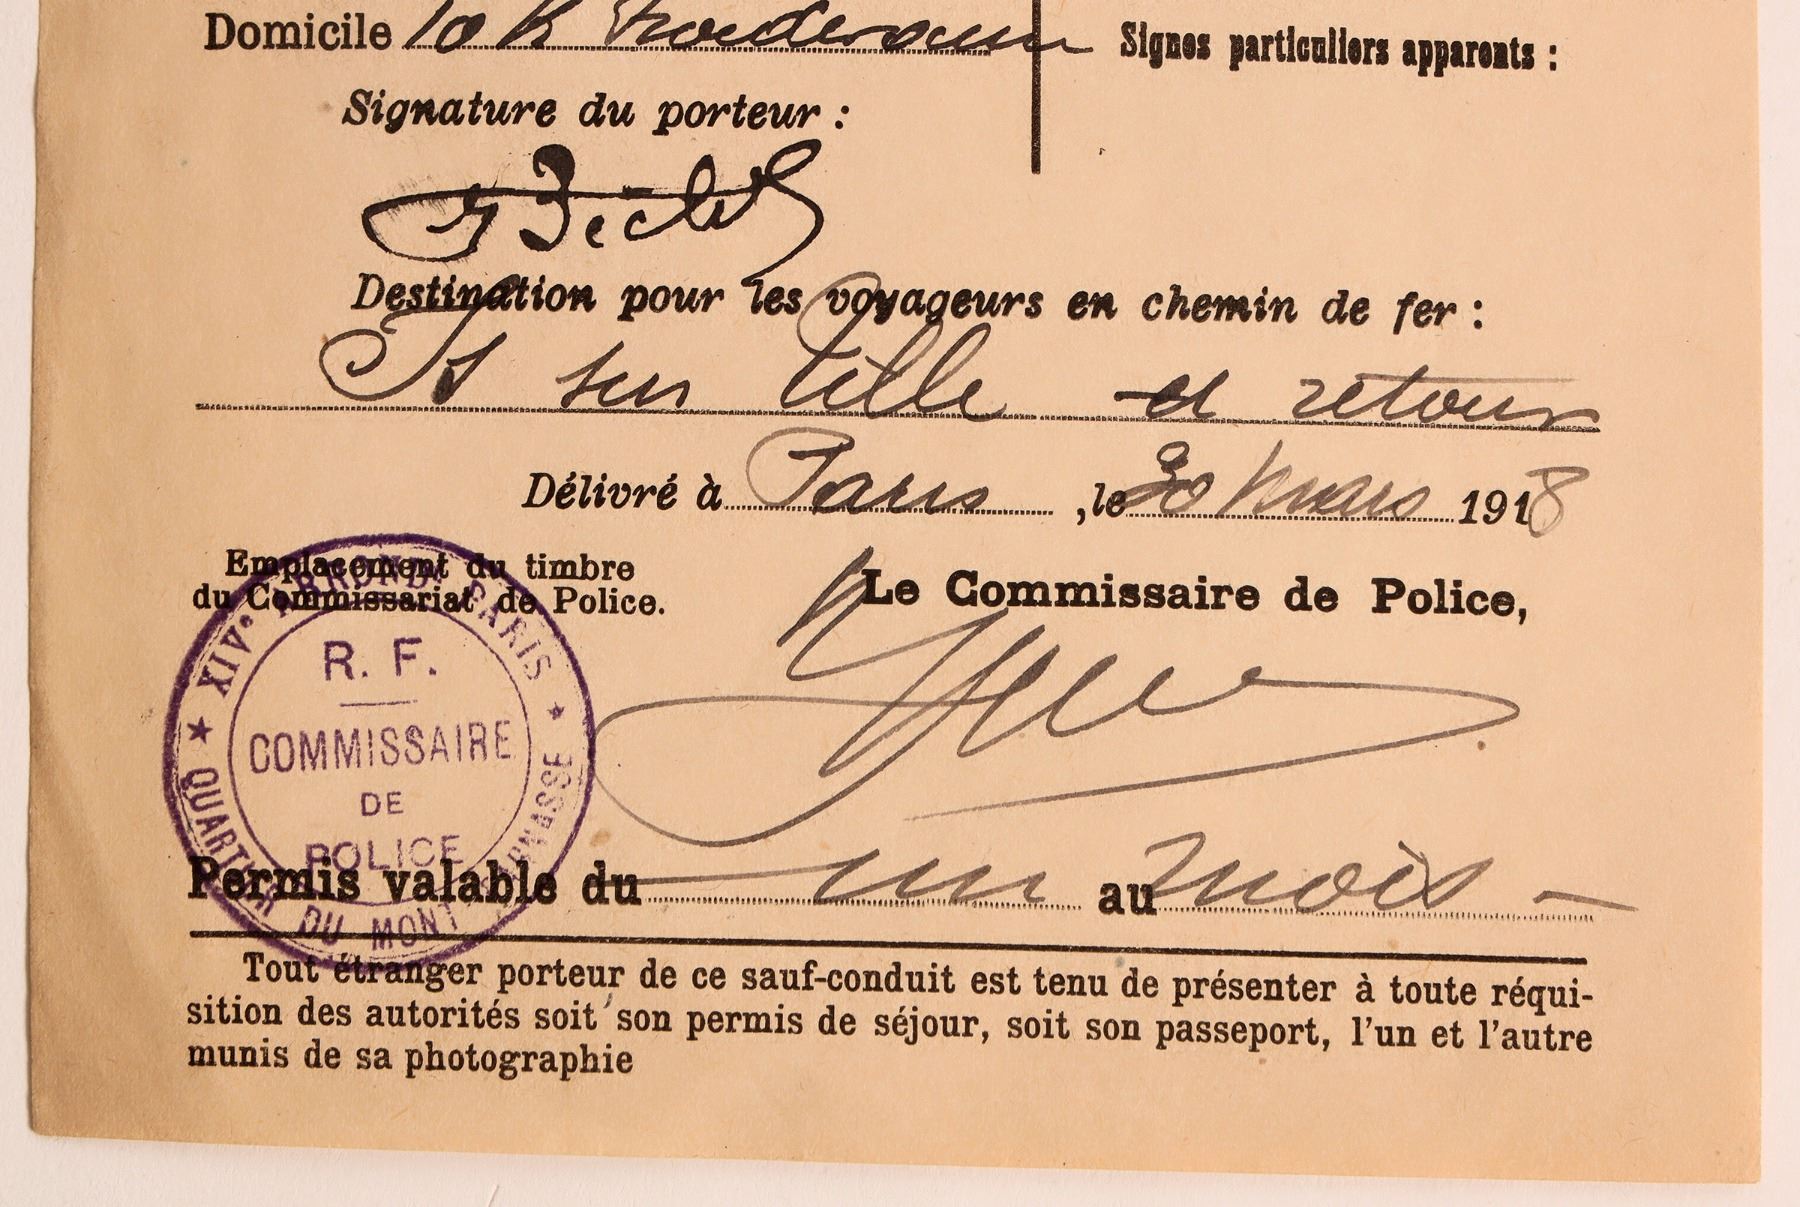 Domicile 10 R
Signes particuliers apparents :
Signature du porteur :
Destination pour les voyageurs en chemin de fer :
Is sur Tille et retour
Délivré à Paris, le 30 Mars 1918
Emplacement du timbre
du Commissariat de Police.
Le Commissaire de Police,
XIVe PARIS
R. F.
COMMISSAIRE
DE
POLICE
QUARTIER DU MONTPARNASSE
Permis valable du un au mois
Tout étranger porteur de ce sauf-conduit est tenu de présenter à toute réqui-
sition des autorités soit son permis de séjour, soit son passeport, l'un et l'autre
munis de sa photographie